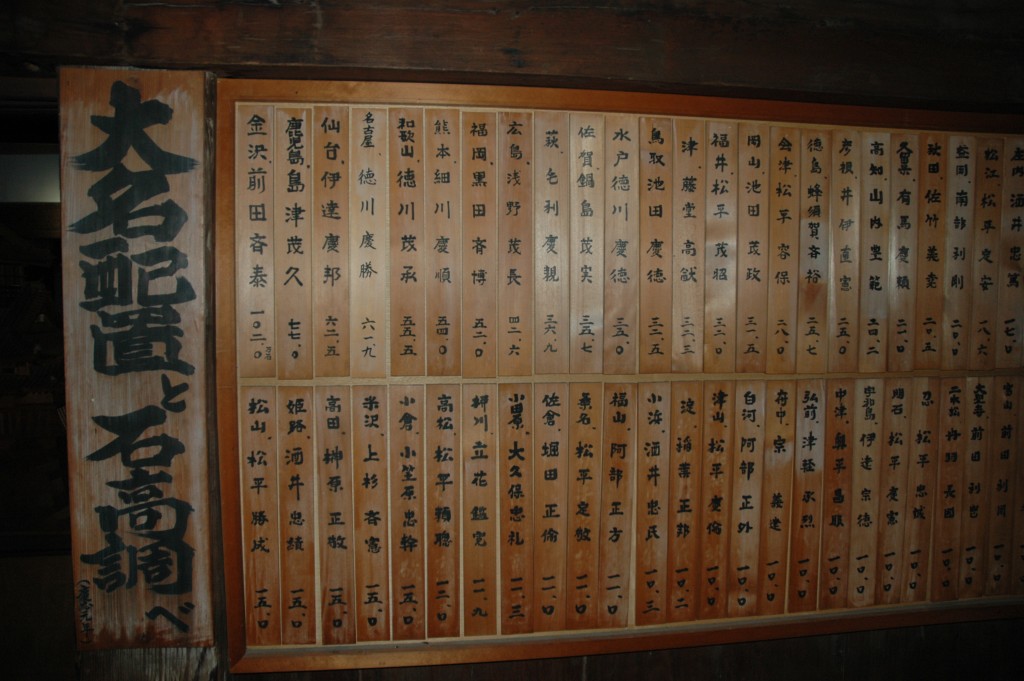 大名配置と石高調べ
(慶応元年)
金沢、前田斉泰 一〇二、〇万石
鹿児島、島津茂久 七七、〇
仙台、伊達慶邦 六二、五
名古屋、徳川慶勝 六一、九
和歌山、徳川茂承 五五、五
熊本、細川慶順 五四、〇
福岡、黒田斉博 五二、〇
広島、浅野茂長 四二、六
萩、毛利慶親 三六、九
佐賀、鍋島茂実 三五、七
水戸、徳川慶徳 三五、〇
鳥取、池田慶徳 三二、五
津、藤堂高猷 三二、三
福井、松平茂昭 三二、〇
岡山、池田茂政 三一、五
会津、松平容保 二八、〇
徳島、蜂須賀斉裕 二五、七
彦根、井伊直憲 二五、〇
高知、山内豊範 二四、二
久留里、有馬慶頼 二一、〇
秋田、佐竹義尭 二〇、五
盛岡、南部利剛 二〇、〇
松江、松平定安 一八、六
庄内、酒井忠篤 一七、〇
松山、松平勝成 一五、〇
姫路、酒井忠績 一五、〇
高田、榊原正敬 一五、〇
米沢、上杉斉憲 一五、〇
小倉、小笠原忠幹 一五、〇
高松、松平頼聰 一二、〇
柳川、立花鑑寛 一一、九
小田原、大久保忠礼 一一、三
佐倉、堀田正倫 一一、〇
桑名、松平定敬 一一、〇
福山、阿部正方 一一、〇
小浜、酒井忠氏 一〇、三
淀、稲葉正邦 一〇、二
津山、松平慶倫 一〇、〇
白河、阿部正外 一〇、〇
府中、宗義達 一〇、〇
弘前、津軽承烈 一〇、〇
中津、奥平昌服 一〇、〇
宇和島、伊達宗徳 一〇、〇
明石、松平慶憲 一〇、〇
忍、松平忠誠 一〇、〇
二本松、丹羽長国 一〇、〇
大聖寺、前田利鬯 一〇、〇
富山、前田利同 一〇、〇